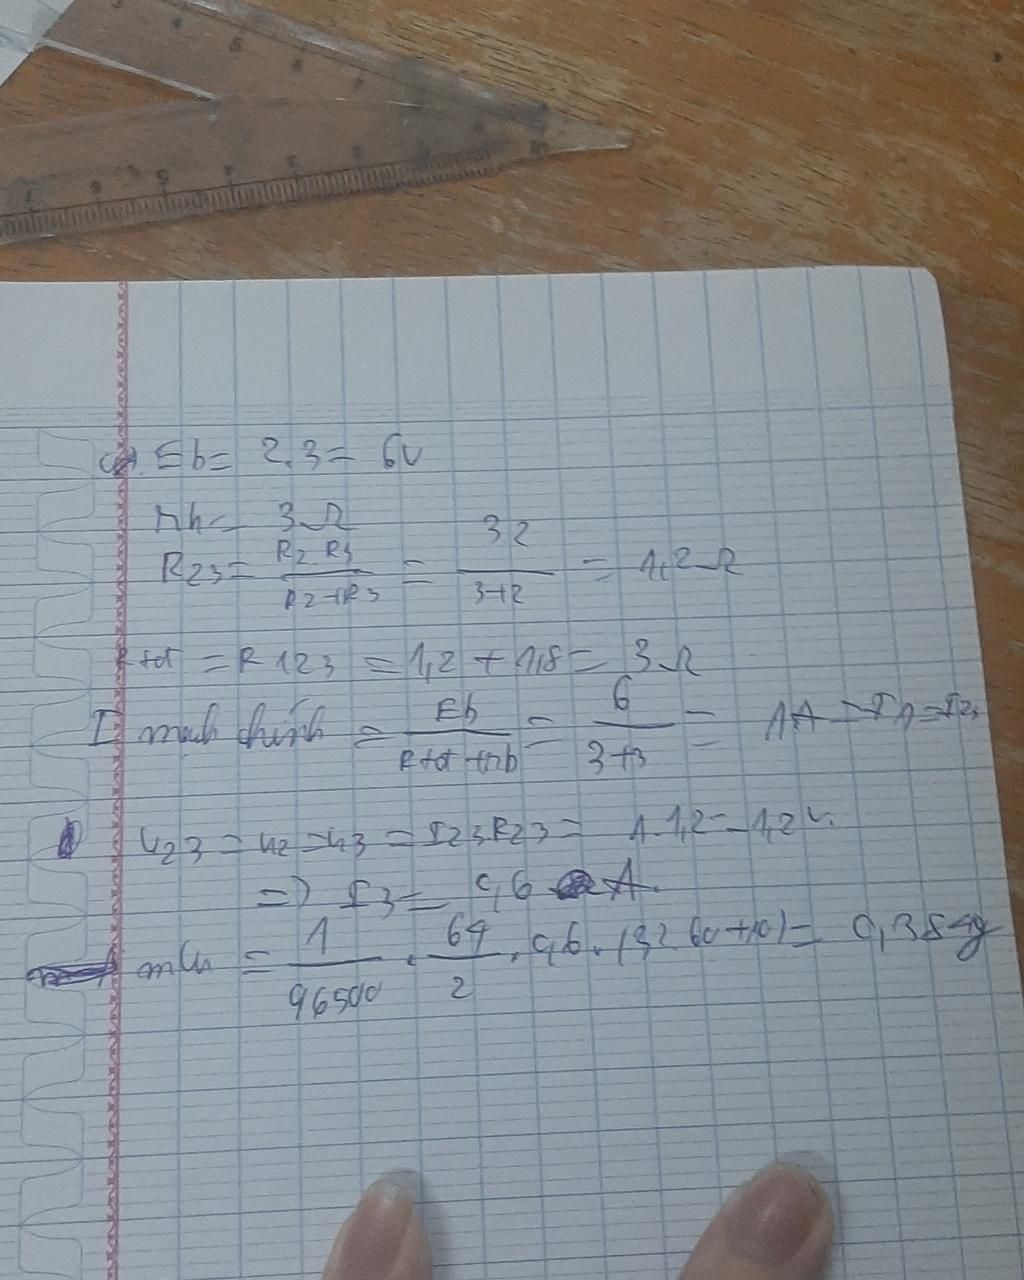 Eb = 2.3 = 6V
rb = 3Ω
R23 = R2.R3 / R2+R3 = 3.2 / 3+2 = 1,2Ω
Rtđ = R123 = 1,2 + 1,8 = 3Ω
I mạch chính = Eb / Rtđ + rb = 6 / 3+3 = 1A = I1 = I23
U23 = U2 = U3 = I23R23 = 1.1,2 = 1,2V.
=> I3 = 0,6 A.
mCu = 1 / 96500 . 64 / 2 . 0,6 . (32.60+10) = 0,384g